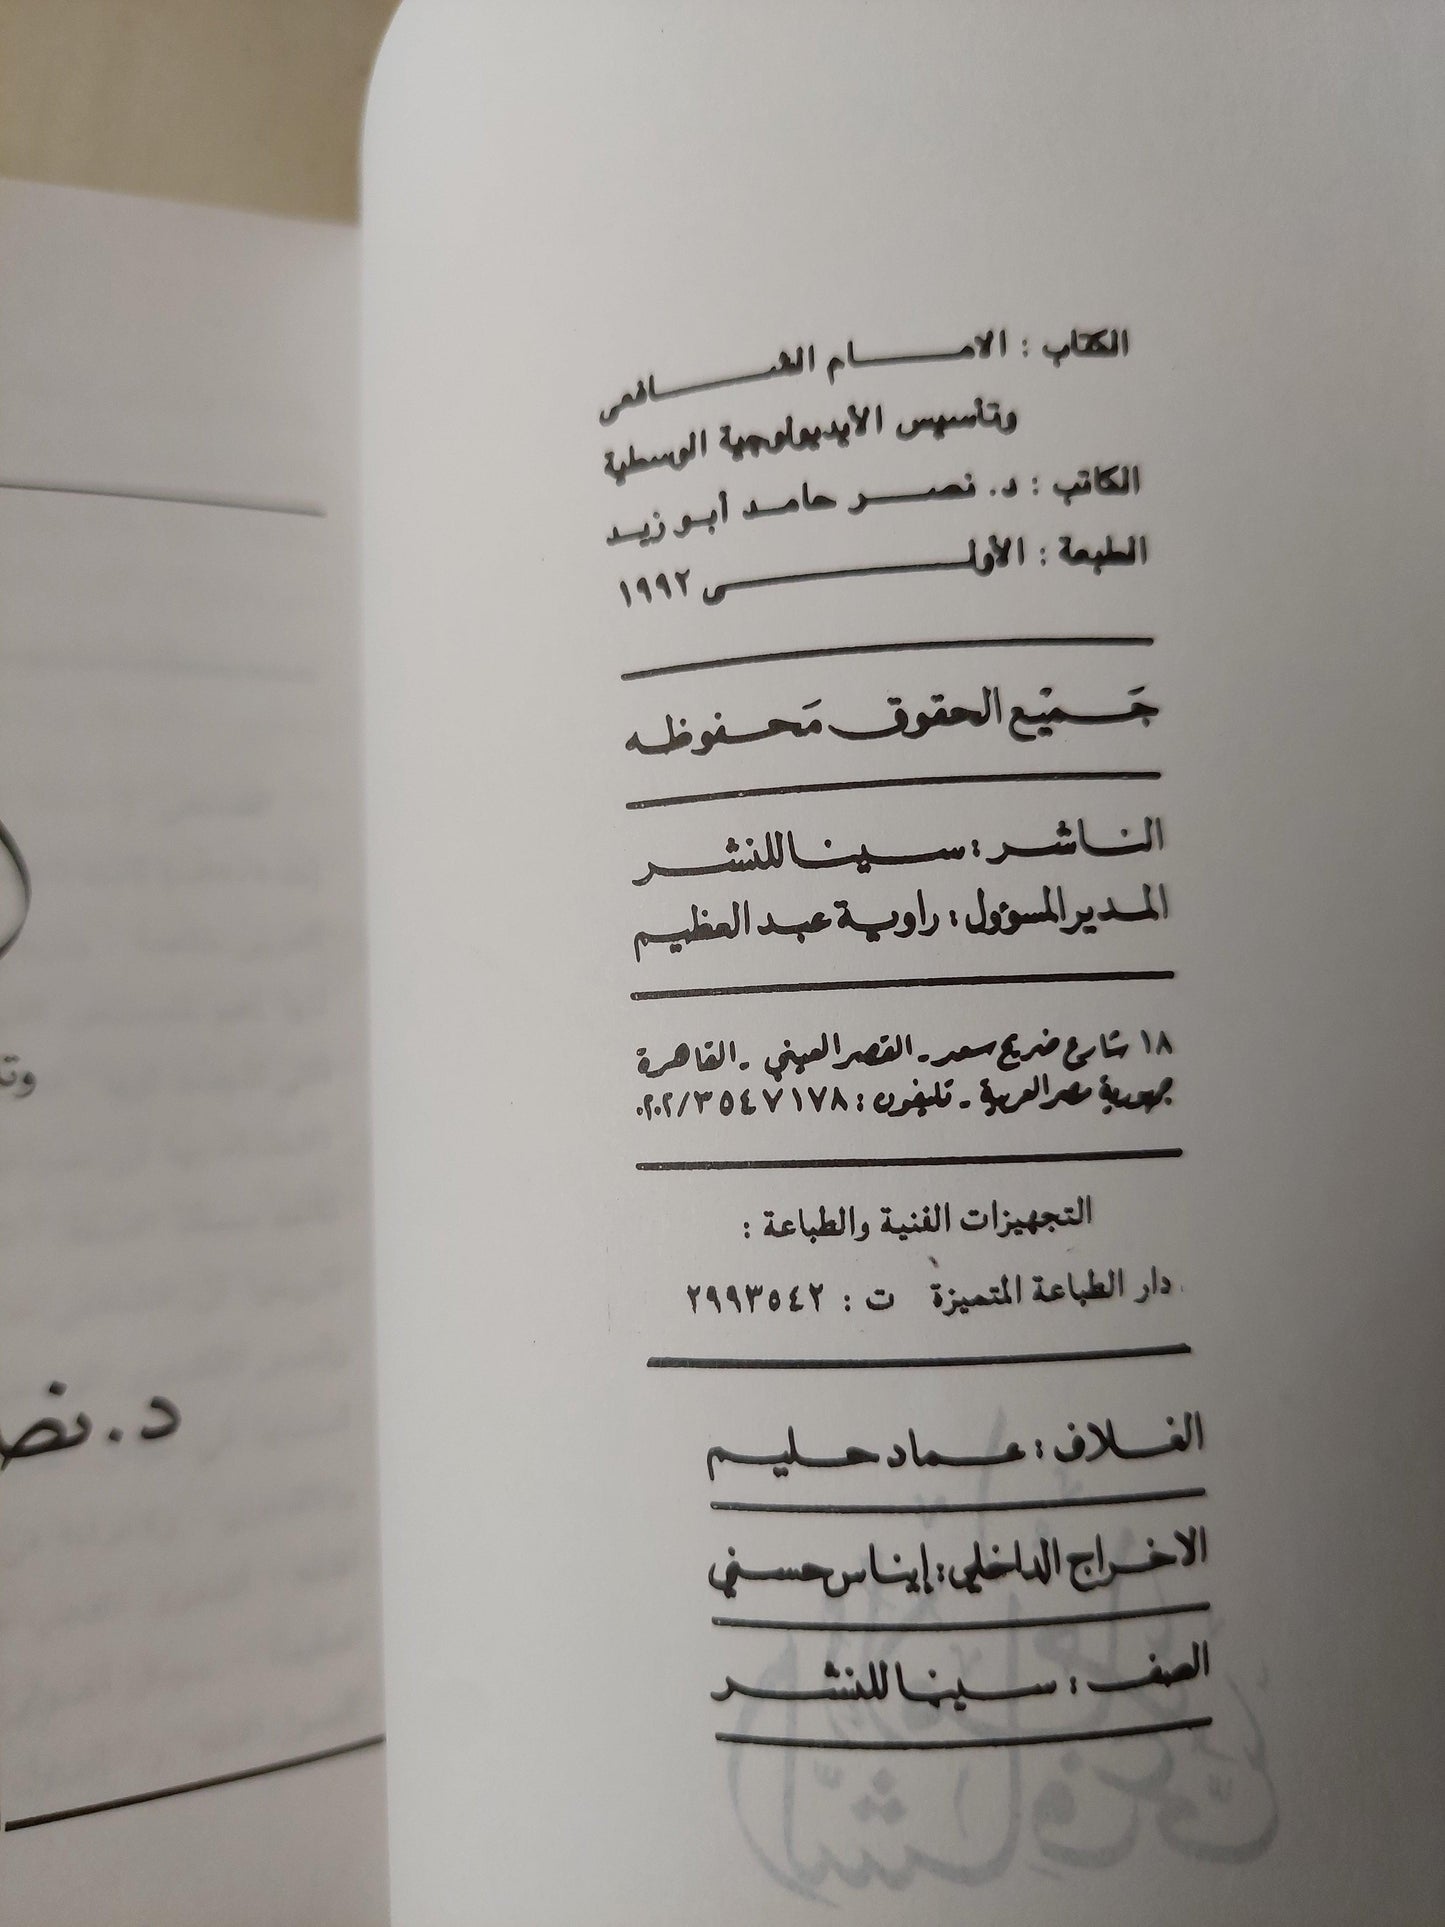 الكتاب : الامام الشافعى
وتأسيس الأيديولوجية الوسطية
الكاتب : د. نصر حامد أبو زيد
الطبعة : الأولى ١٩٩٢
جَميْع الحقوق مَحفوظه
الناشر : سينا للنشر
المدير المسؤول : راوية عبد العظيم
١٨ شارع ضريح سعد - القصر العيني - القاهرة
جمهورية مصر العربية - تليفون : ٠٢٠٢/٣٥٤٧١٧٨
التجهيزات الفنية والطباعة :
دار الطباعة المتميزة ت : ٢٩٩٣٥٤٢
الغلاف : عماد حليم
الاخراج الداخلي : إيناس حسني
الصف : سينا للنشر
وتأ
د. نصر